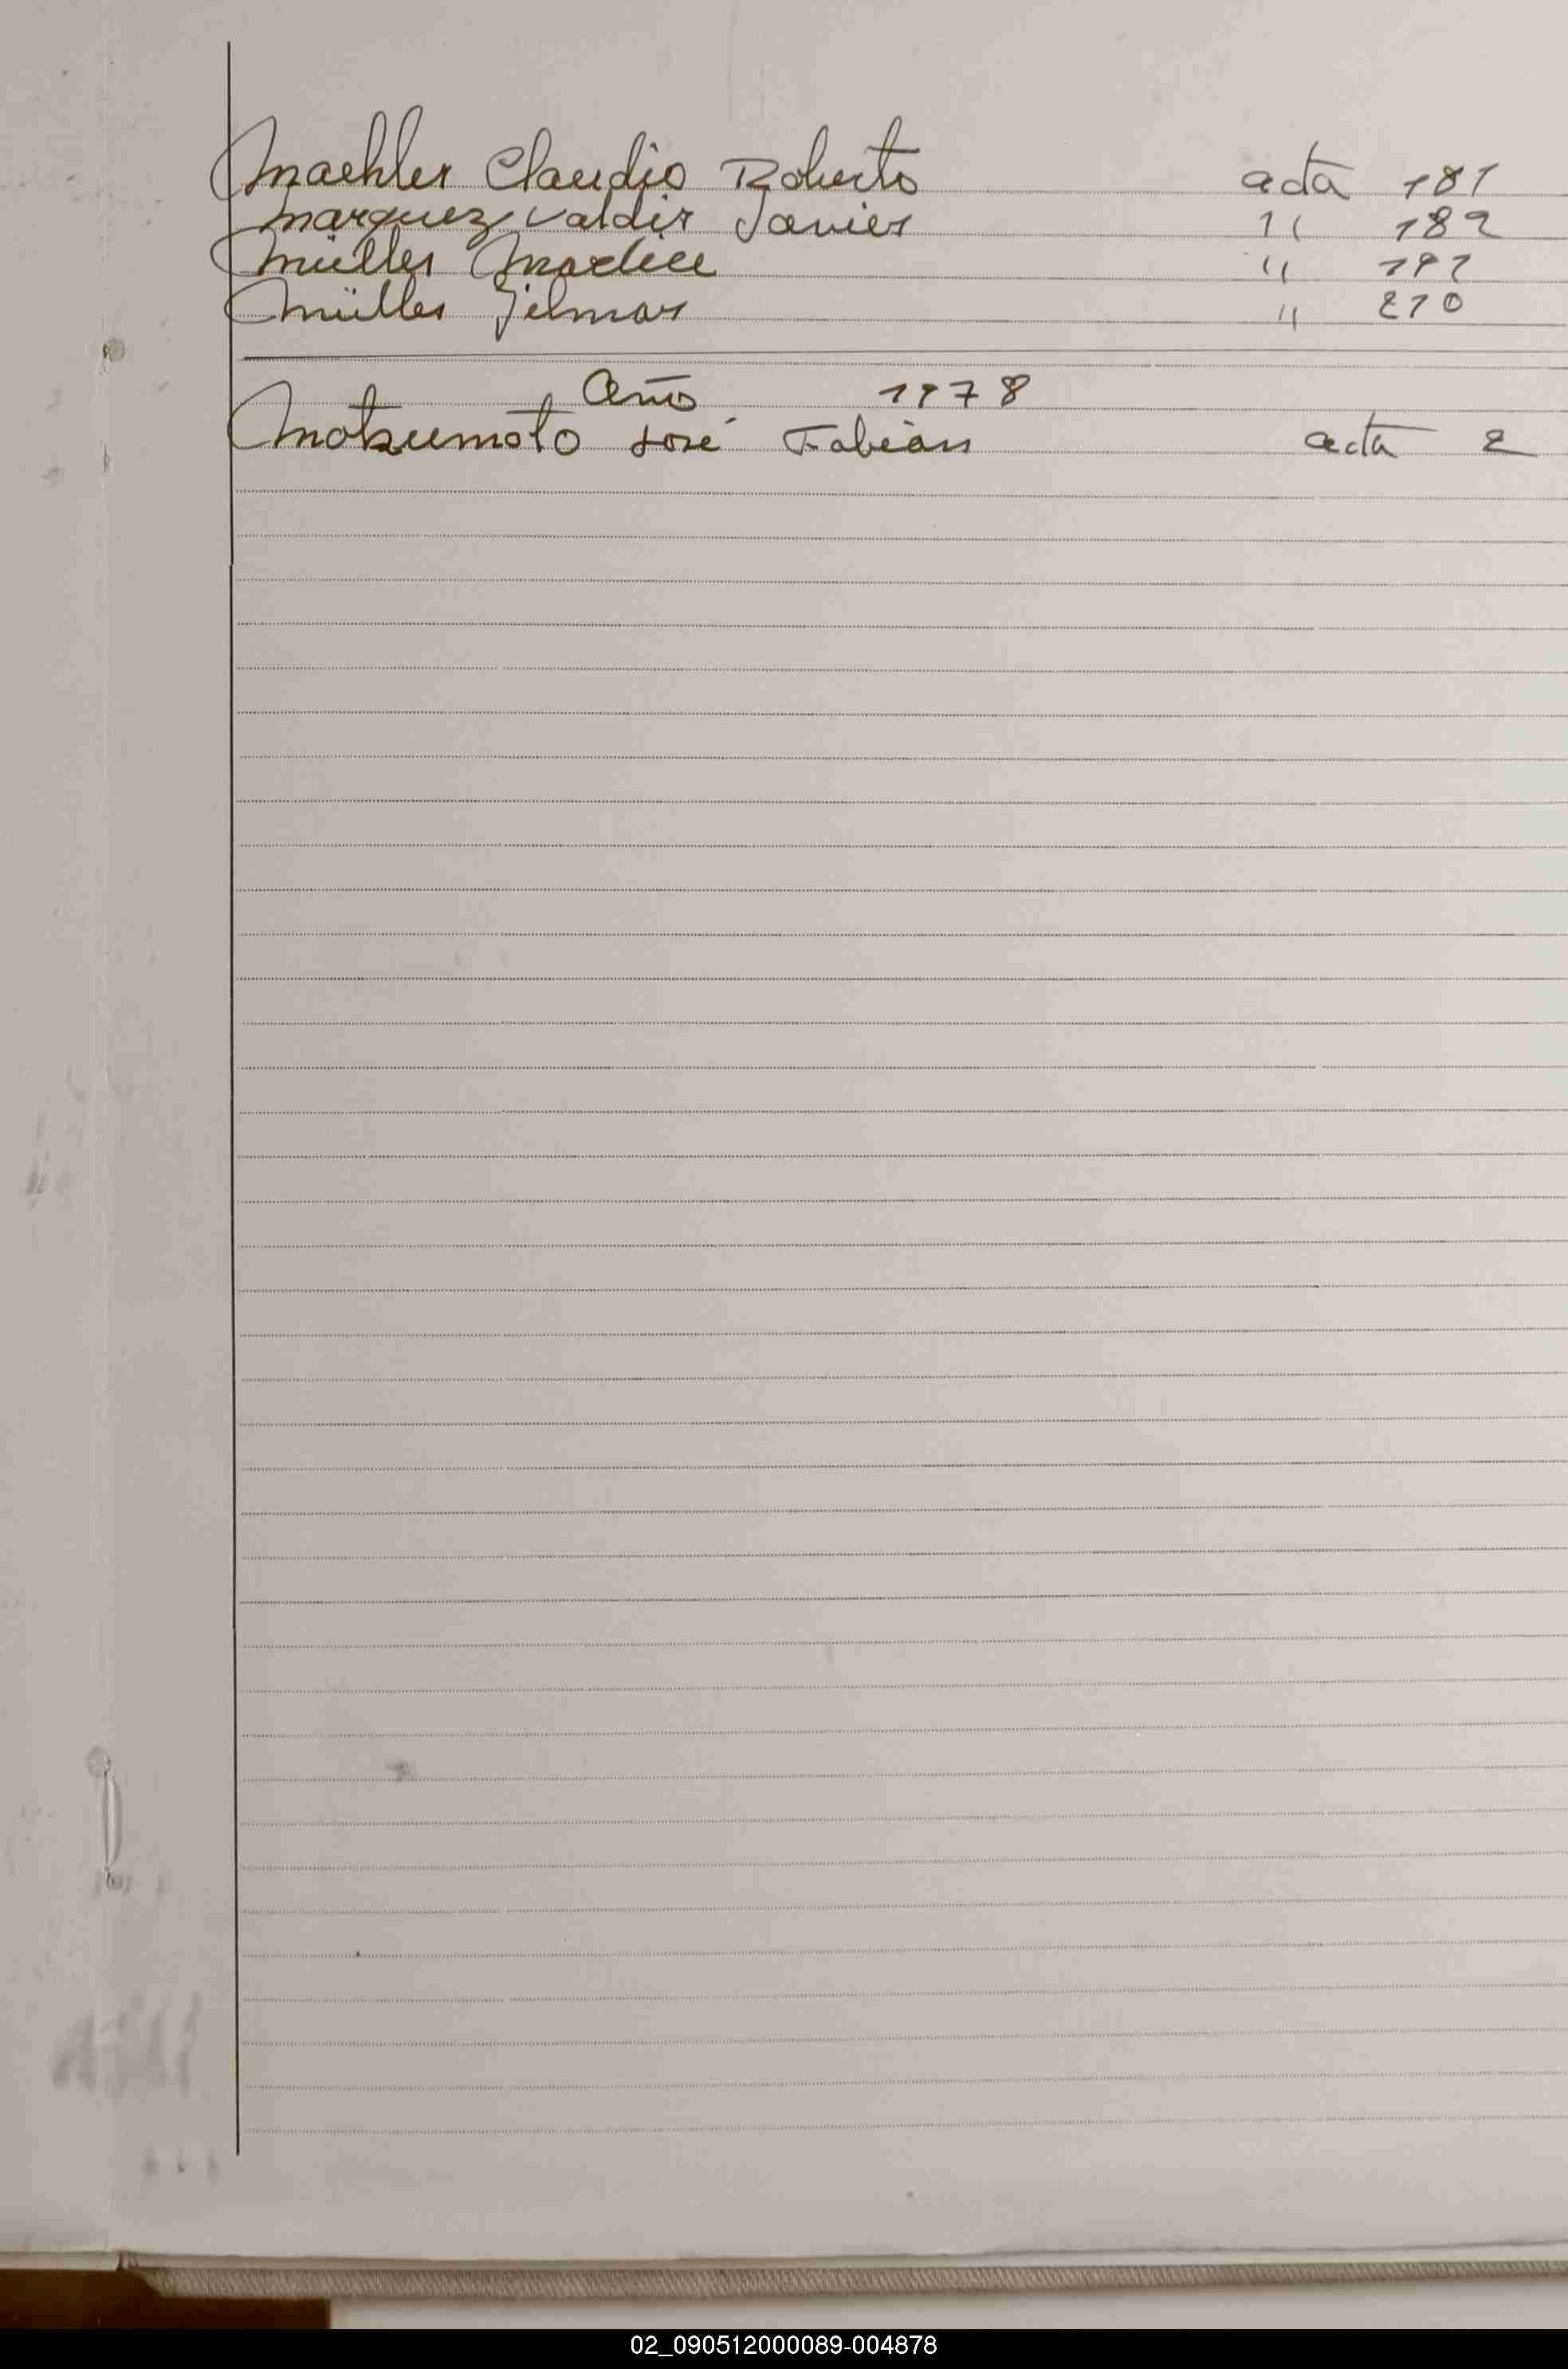 Maehler Claudio Roberto acta 181
Marquez Valdir Javier " 182
Müller Marlice " 191
Müller Gilmar " 210
Año 1978
Motzumoto José Fabián acta 2
02_090512000089-004878